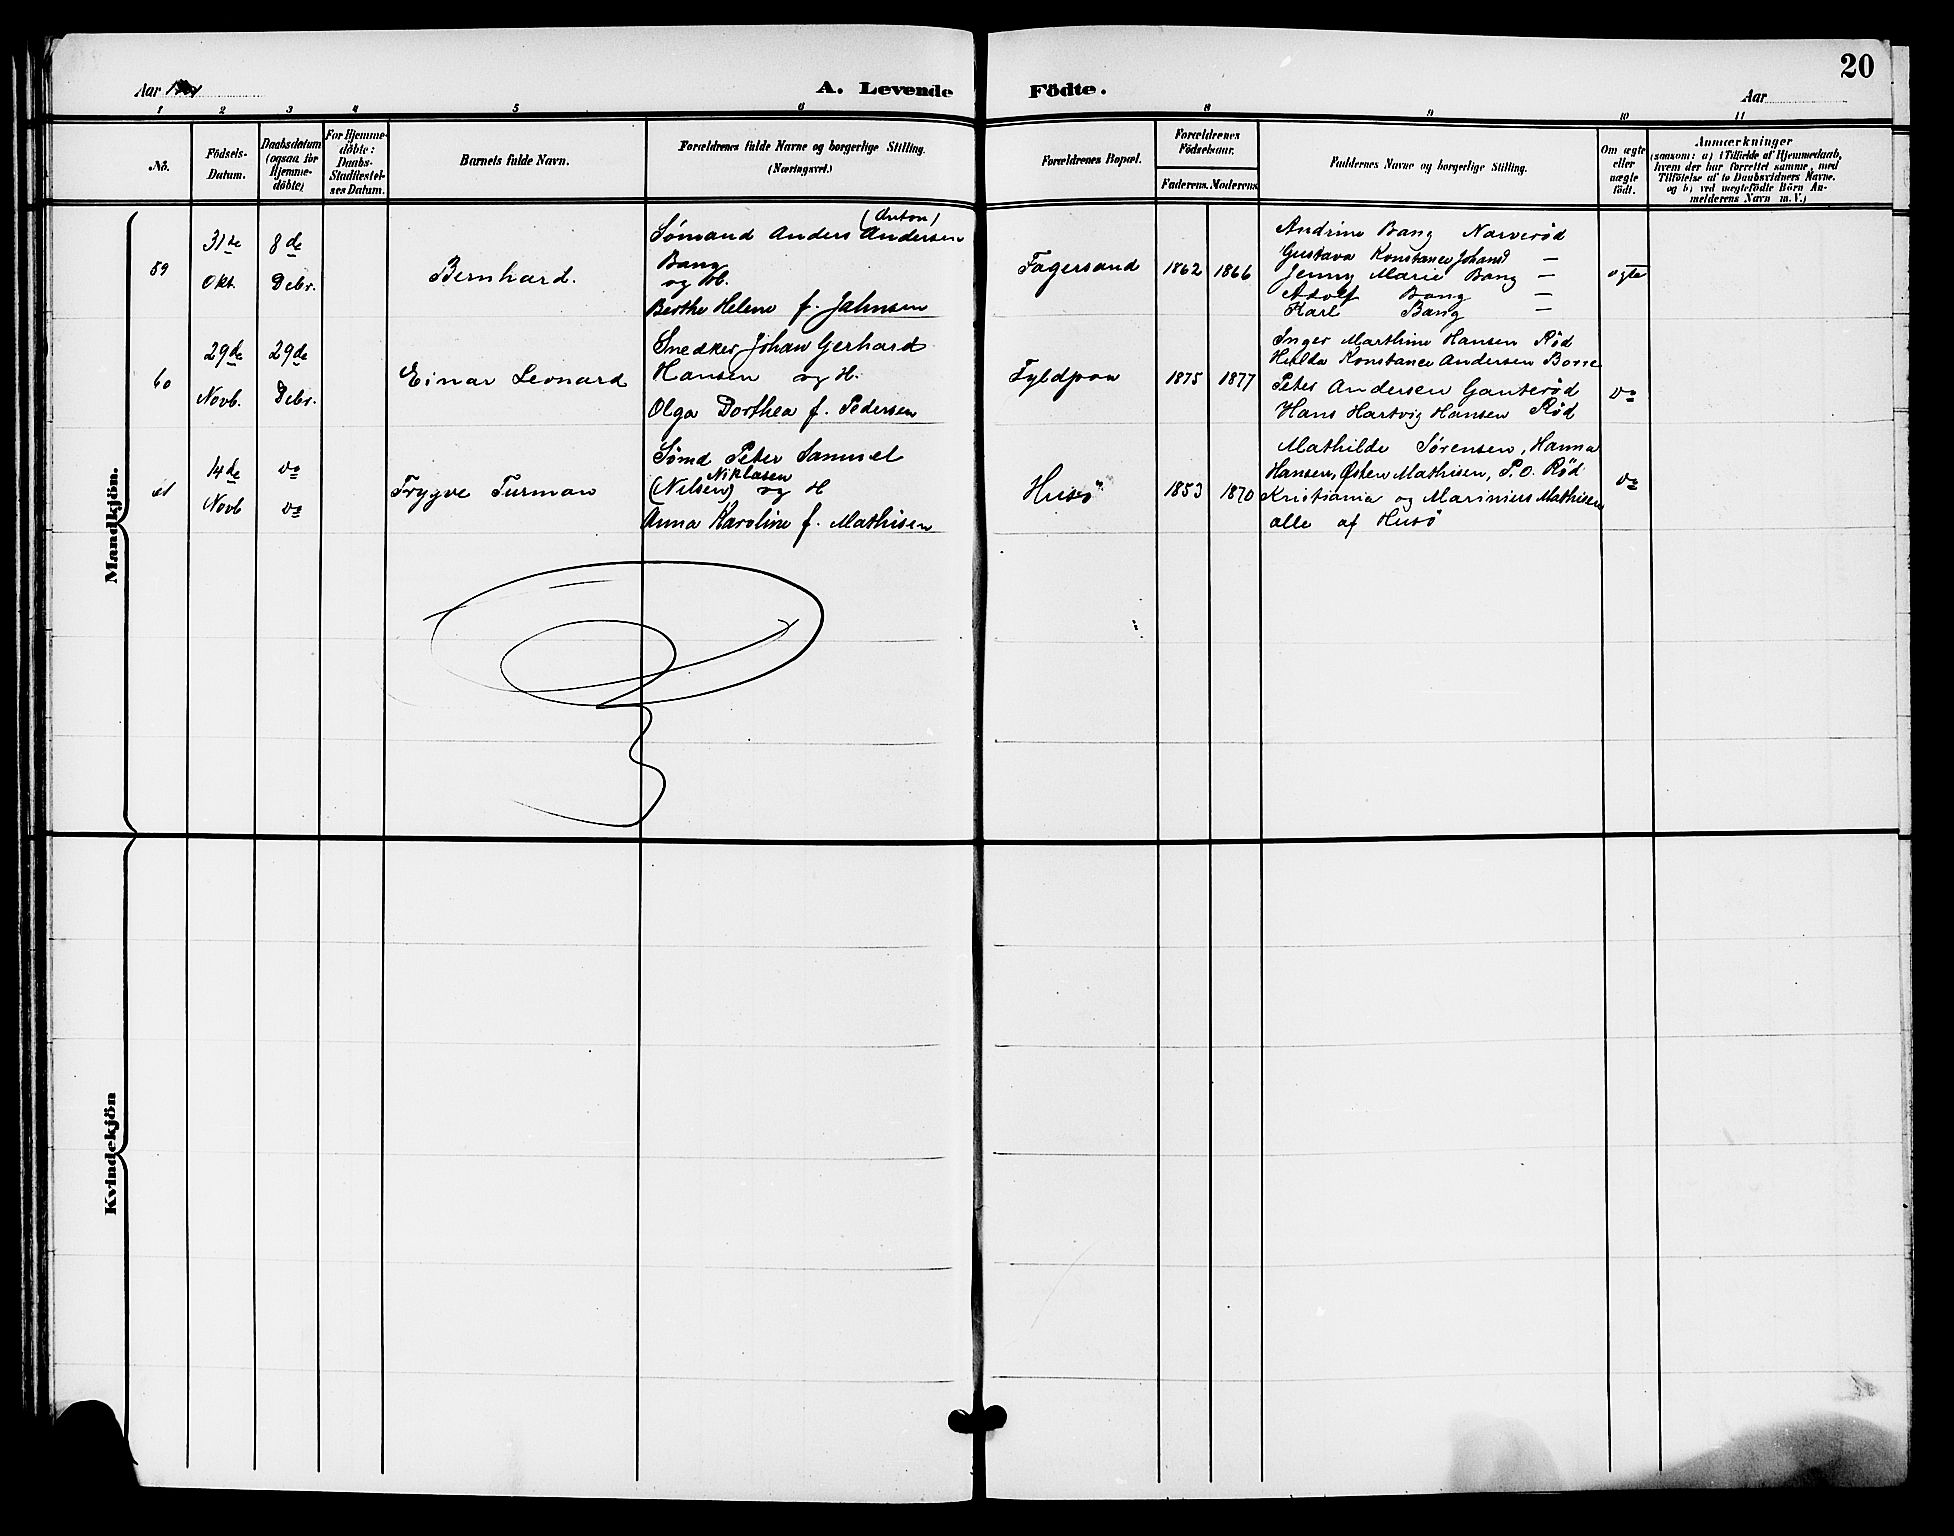 20
Aar
A. Levende Födte.
Aar
1 2 3 4 5 6 8 9 10 11
No.
Födsels-Datum.
Daabsdatum (ogsaa for Hjemme-döbte)
For Hjemme-döbte: Daabs-Stadfæstel-ses Datum.
Barnets fulde Navn.
Forældrenes fulde Navne og borgerlige Stilling.
(Næringsvei.)
Forældrenes Bopæl.
Forældrenes Födselsaar.
Faderens. Moderens.
Faddernes Navne og borgerlige Stilling.
Om ægte eller uægte födt.
Anmærkninger
(saasom: a) i Tilfælde af Hjemmedaab,
hvem der har forrettet samme, med
Tilföielse af to Daabsvidners Navne.
og b) ved uægtefödte Börn An-
melderens Navn m. V.)
Mandkjön.
59
31te Okt.
8de Debr.
Bernhard.
(Anton)
Sømand Anders Andersen
Bang
og H.
Berthe Helene f. Jahnsen
Fagersand
1862 1866
Andrine Bang Narverød
Gustava Konstance Johans —
Jenny Marie Bang —
Adolf Bang —
Karl Bang —
ægte
60
29de Novb.
29de Debr.
Einar Leonard
Snedker Johan Gerhard
Hansen og H.
Olga Dorthea f. Pedersen
Fyldpaa
1875 1877
Inger Marthine Hansen Rød
Hulda Konstance Andersen Borre
Peter Andersen Gauterød
Hans Hartvig Hansen Rød
do
61
14de Novb
do do
Trygve Furman
Sømd Peter Samuel
Niklasen
(Nilsen) og H
Anna Karoline f. Mathisen
Husø
1853 1870
Mathilde Sørensen, Hanna
Hansen, Østen Mathisen, P.O. Rød
Kristiania og Marinius Mathisen
alle af Husø
do
Kvindekjön